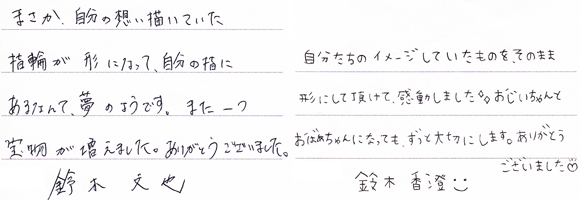 まさか、自分の想い描いていた
指輪が形になって、自分の指に
あるなんて、夢のようです。また一つ
宝物が増えました。ありがとうございました。
鈴木 文也
自分たちのイメージしていたものを、そのまま
形にして頂けて、感動しました。おじいちゃんと
おばあちゃんになっても、ずっと大切にします。ありがとう
ございました
鈴木 香澄